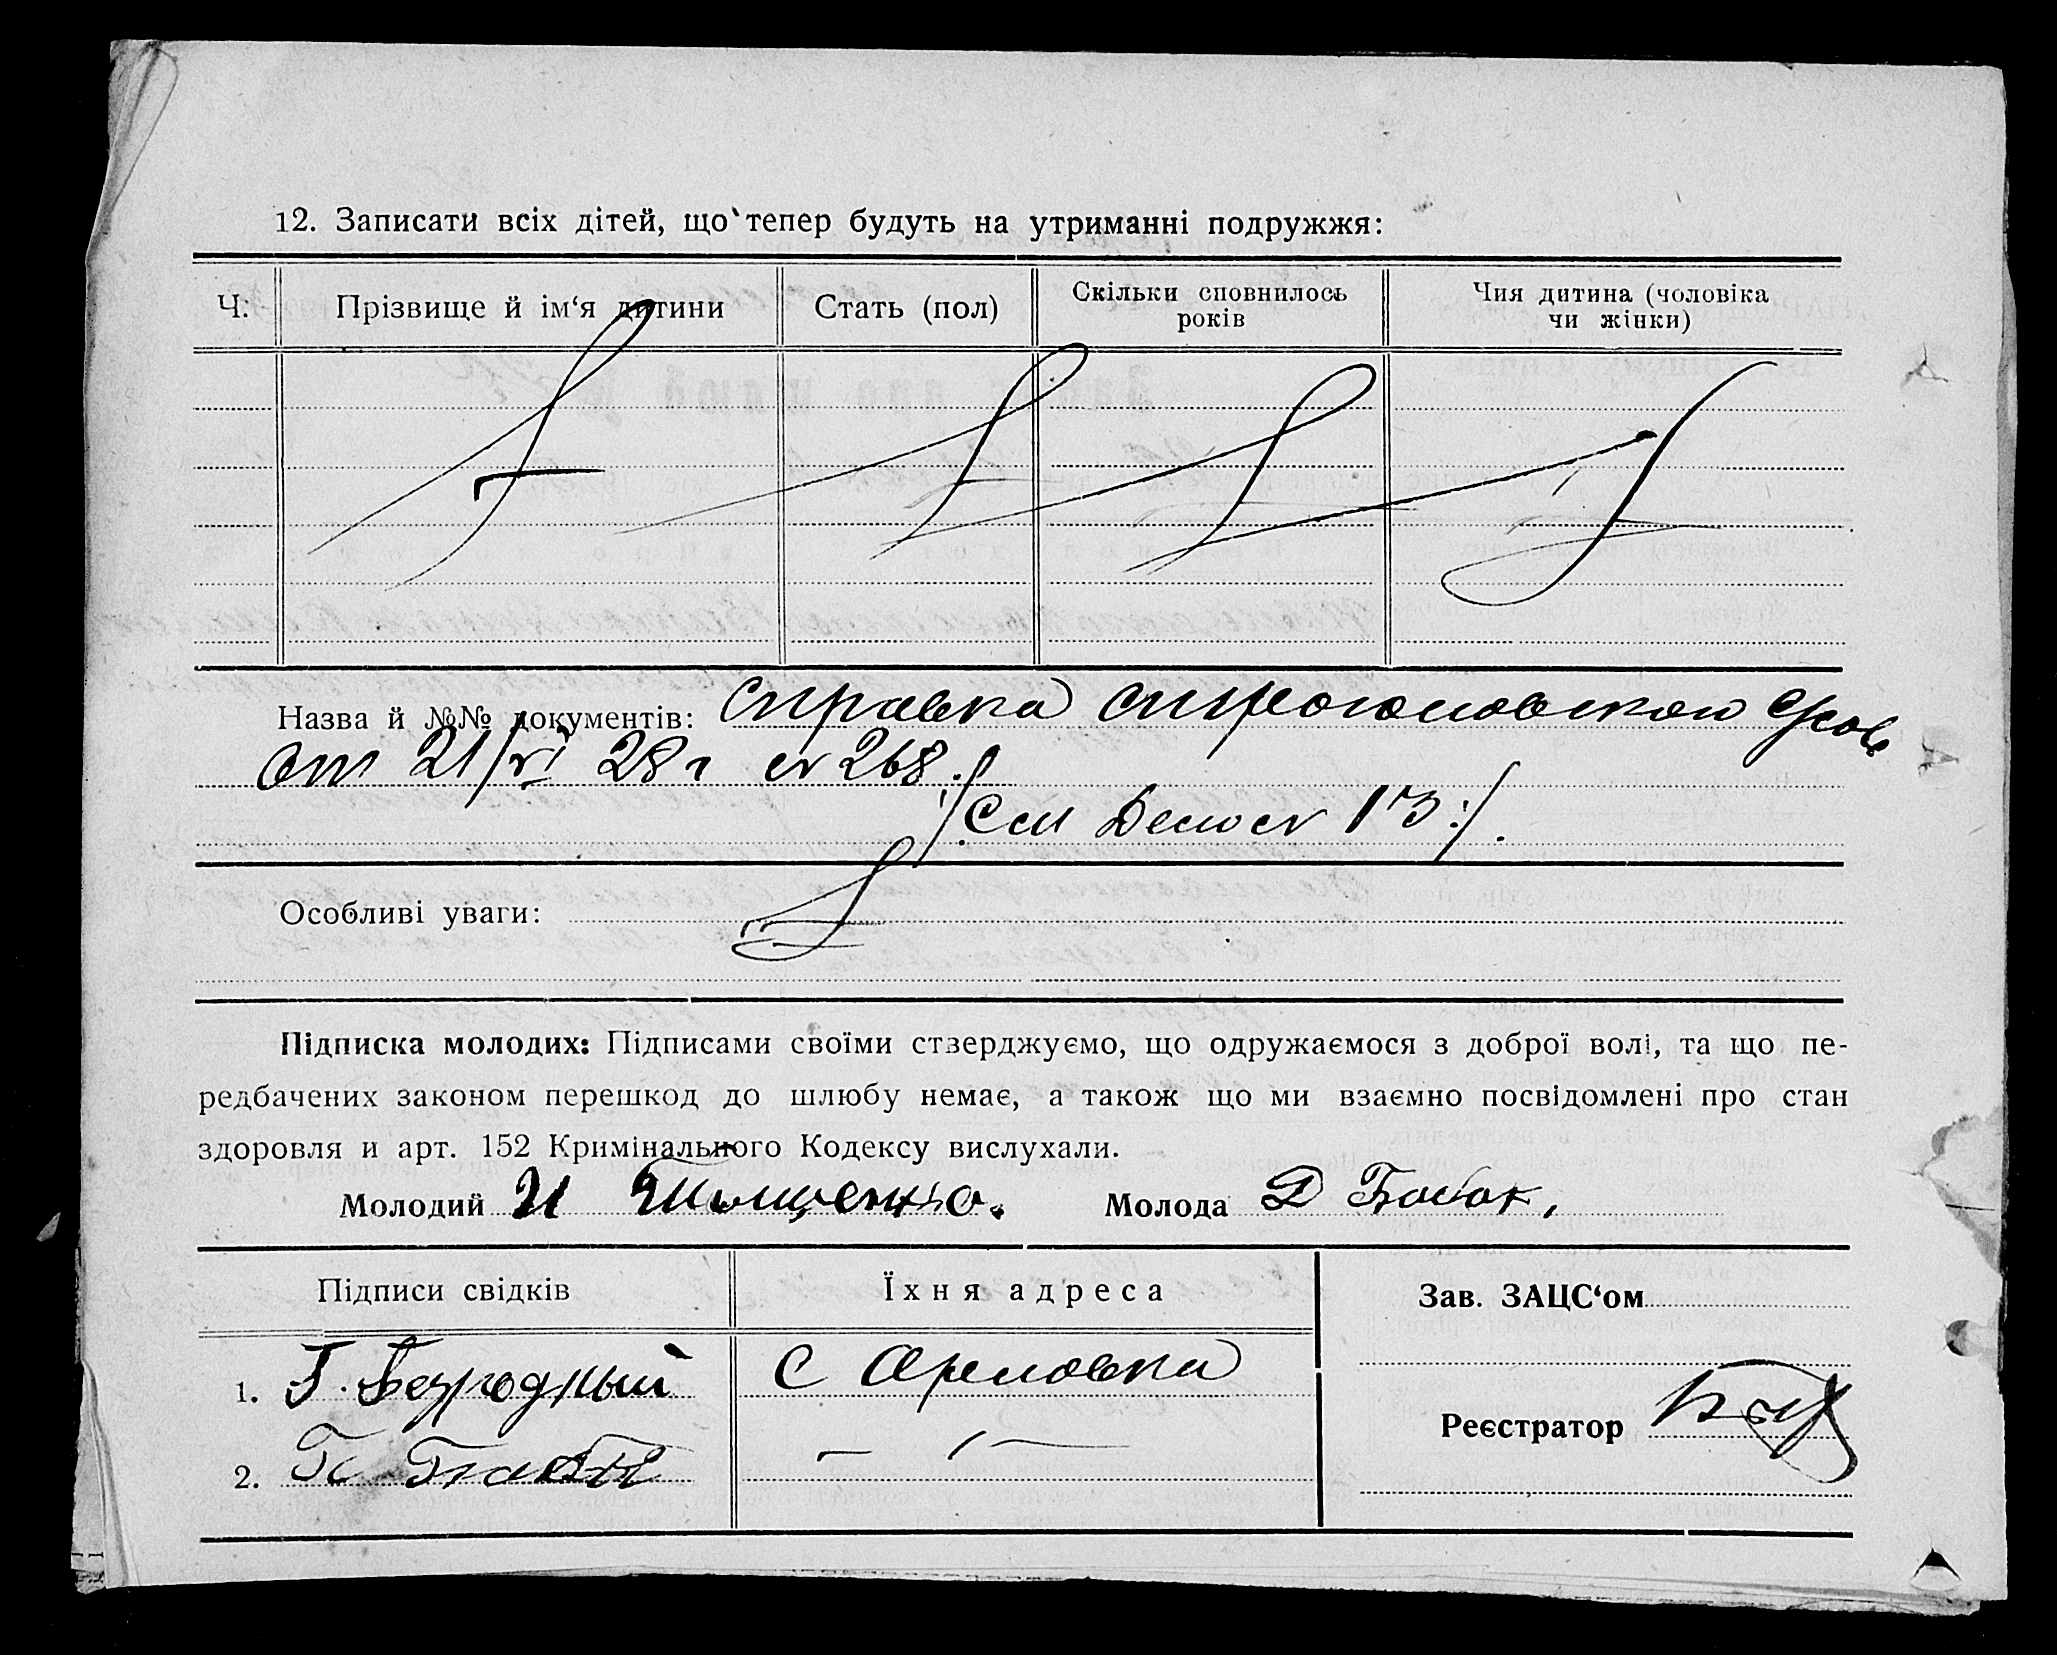 12. Записати всіх дітей, що тепер будуть на утриманні подружжя:
Ч:
Прізвище й ім‘я дитини
Стать (пол)
Скільки сповнилось
років
Чия дитина (чоловіка
чи жінки)
Назва й №№ документів: справка
от 21/VI 28 г № 268.
/: См Демо № 173 :/.
Особливі уваги:
Підписка молодих: Підписами своїми стверджуємо, що одружаємося з доброї волі, та що пе-
редбачених законом перешкод до шлюбу немає, а також що ми взаємно посвідомлені про стан
здоровля и арт. 152 Кримінального Кодексу вислухали.
Молодий И Тимщенко. Молода Д
Підписи свідків
Їхня адреса
Зав. ЗАЦС‘ом
1. Г. Безродный
С Ореловка
Реєстратор
2.